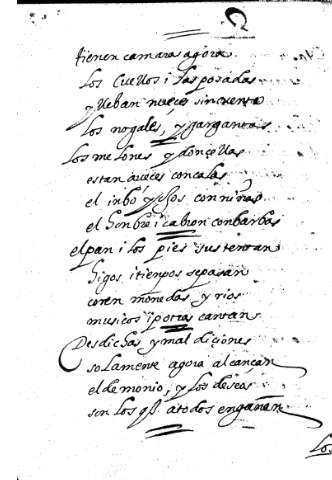 tienen camaras agora
los cuellos i las posadas
y lleban nueces sin cuenta
los nogales, y gargantas
los melones y donçellas
estan a veces con calas
el y ellos con niñas
el honbre i cabron con barbas
el pan i los pies sustentan
higos i tienpos se pasan
coren monedas y rios
musicos i potras cantan
Desdichas y maldiciones
solamente agora alcançan
el demonio, y los deseos
son los q̃ a todos engañan
Lo